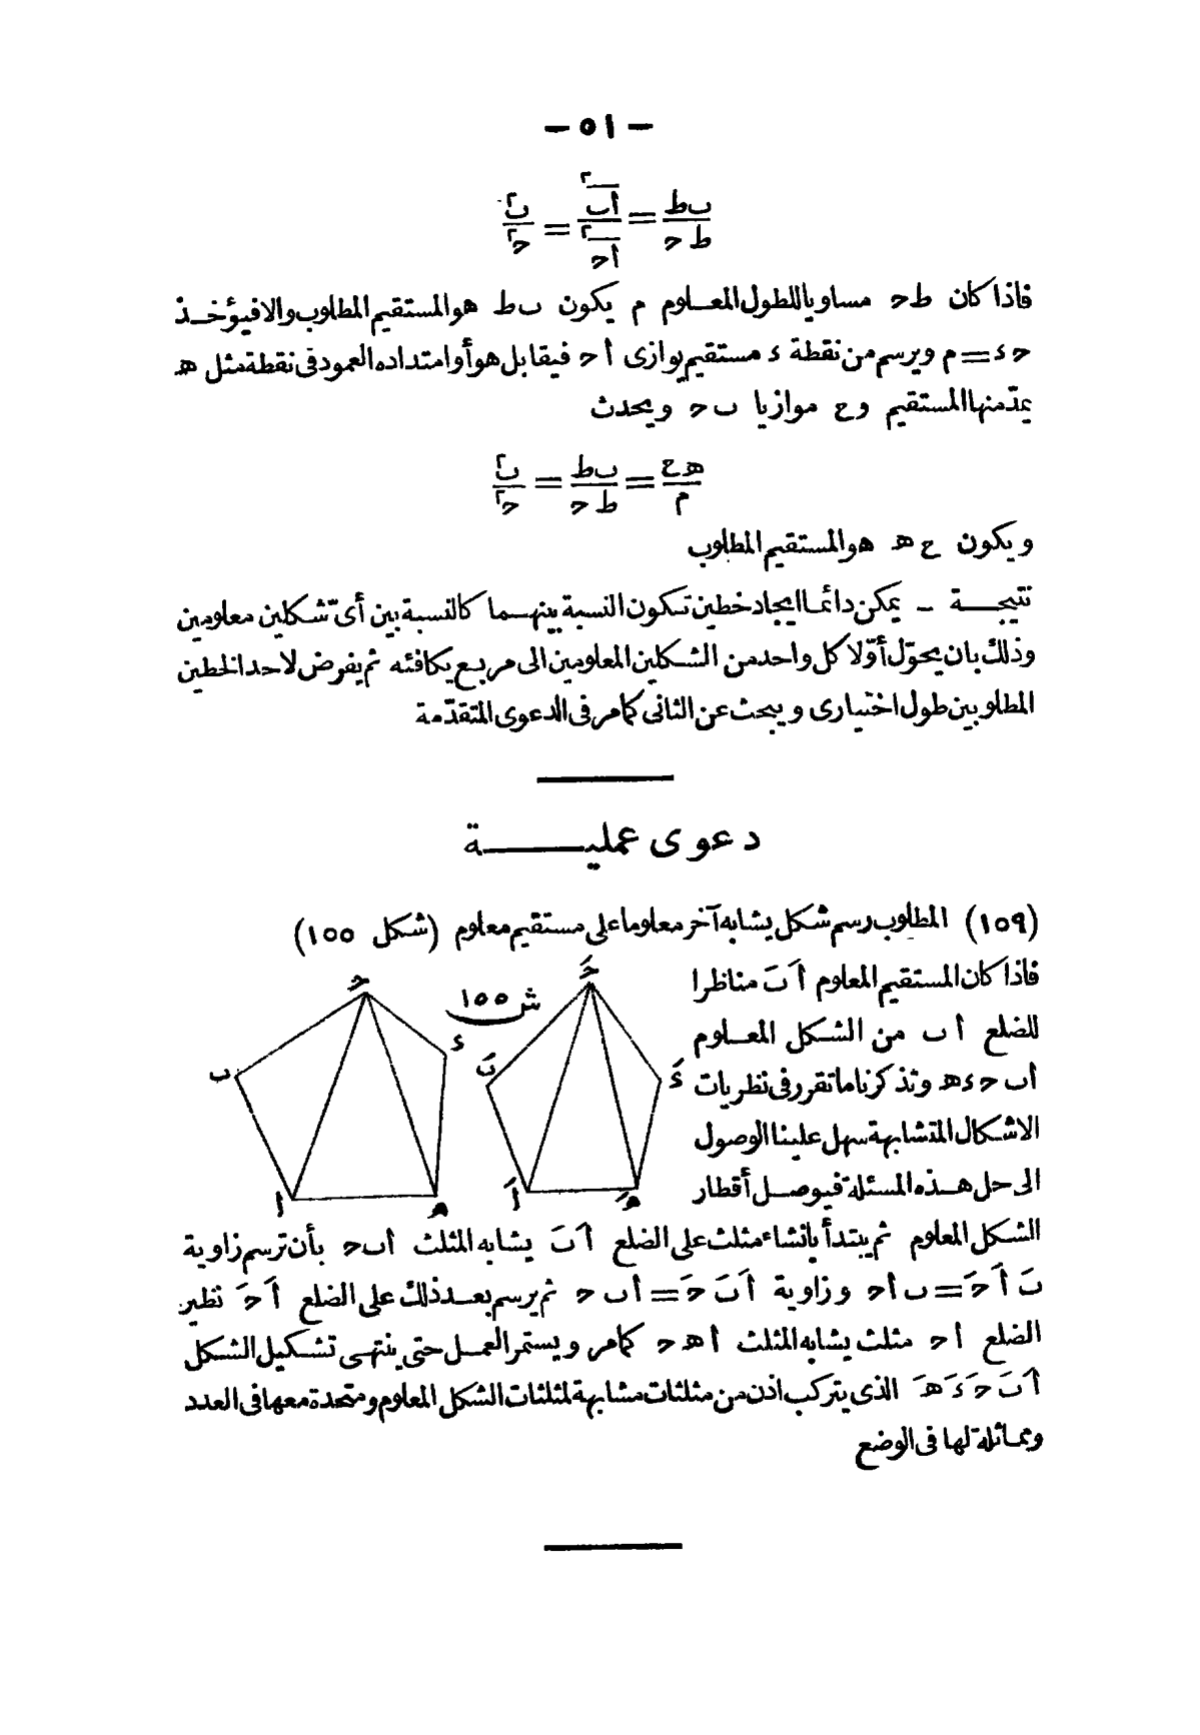 — ٥١ —
ب ط / ط ح = أب٢ / أح٢ = ب٢ / ح٢
فاذا كان ط ح مساويا للطول المعلوم م يكون ب ط هو المستقيم المطلوب والا فيؤخذ
ح ء = م ويرسم من نقطة ء مستقيم يوازى أ ح فيقابل هو أو امتداده العمود فى نقطة مثل ھ
يمدّ منها المستقيم و ح موازيا ب ح ويحدث
ھ ح / م = ب ط / ط ح = ب٢ / ح٢
ويكون ح ھ هو المستقيم المطلوب
نتيجة - يمكن دائما ايجاد خطين تكون النسبة بينهما كالنسبة بين أىّ شكلين معلومين
وذلك بان يحوّل أوّلا كل واحد من الشكلين المعلومين الى مربع يكافئه ثم يفرض لاحد الخطين
المطلوبين طول اختيارى ويبحث عن الثانى كما مر فى الدعوى المتقدّمة
دعوى عملية
(١٥٩) المطلوب رسم شكل يشابه آخر معلوما على مستقيم معلوم (شكل ١٥٥)
فاذا كان المستقيم المعلوم أَ بَ مناظرا
للضلع أ ب من الشكل المعلوم
أ ب ح ء ھ وتذكرنا ما تقرر فى نظريات
الاشكال المتشابهة سهل علينا الوصول
الى حل هذه المسئلة فيوصل أقطار
ش ١٥٥
ح
ء
ب
أ
ھ
حَ
ءَ
بَ
أَ
ھَ
الشكل المعلوم ثم يبتدأ بانشاء مثلث على الضلع أَ بَ يشابه المثلث أ ب ح بأن ترسم زاوية
بَ أَ حَ = ب أ ح وزاوية أَ بَ حَ = أ ب ح ثم يرسم بعد ذلك على الضلع أَ حَ نظير
الضلع أ ح مثلث يشابه المثلث أ ھ ح كما مر ويستمر العمل حتى ينتهى تشكيل الشكل
أَ بَ حَ ءَ ھَ الذى يتركب اذن من مثلثات مشابهة لمثلثات الشكل المعلوم ومتحدة معها فى العدد
ومماثلة لها فى الوضع